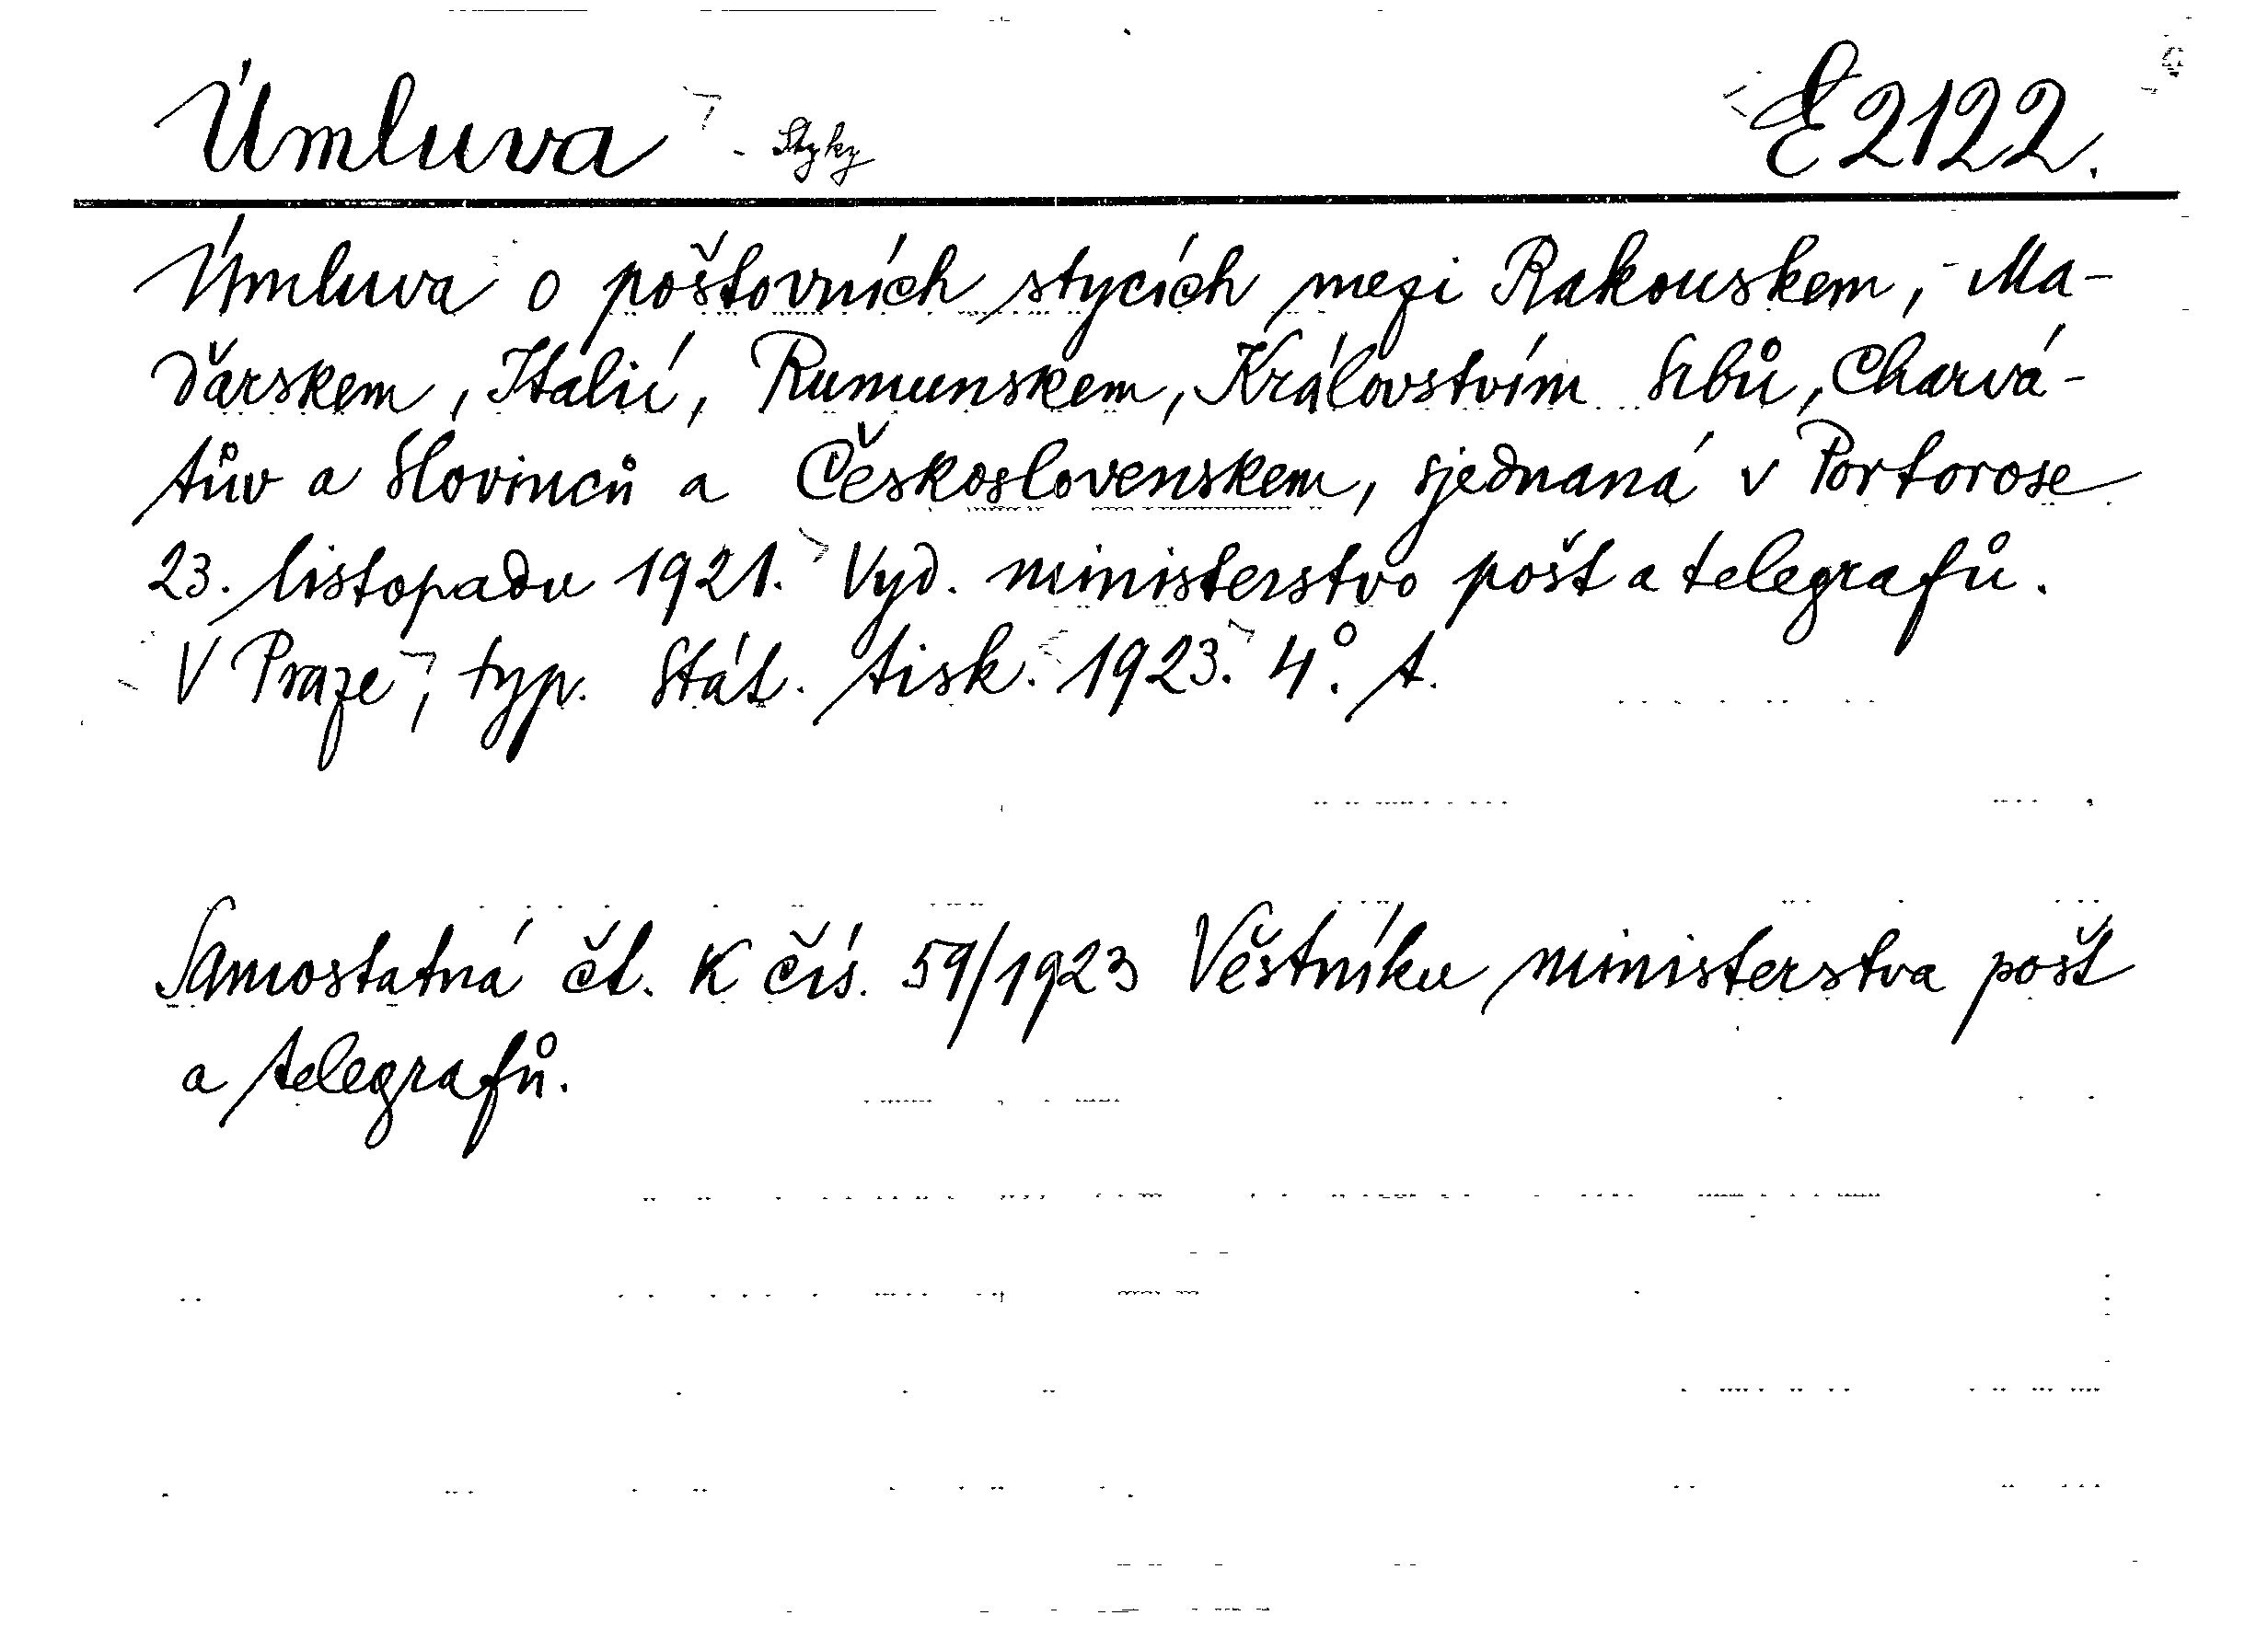 Úmluva - Styky E 2122.
Úmluva o poštovních stycích mezi Rakouskem, Ma-
ďarskem, Italií, Rumunskem, Královstvím Srbů, Charvá-
tův a Slovinců a Československem, sjednaná v Portorose
23. listopadu 1921. Vyd. ministerstvo pošt a telegrafů.
V Praze, typ. Stát. tisk. 1923. 4°. t.
Samostatná čl. K čís. 59/1923 Věstníku ministerstva pošt
a telegrafů.